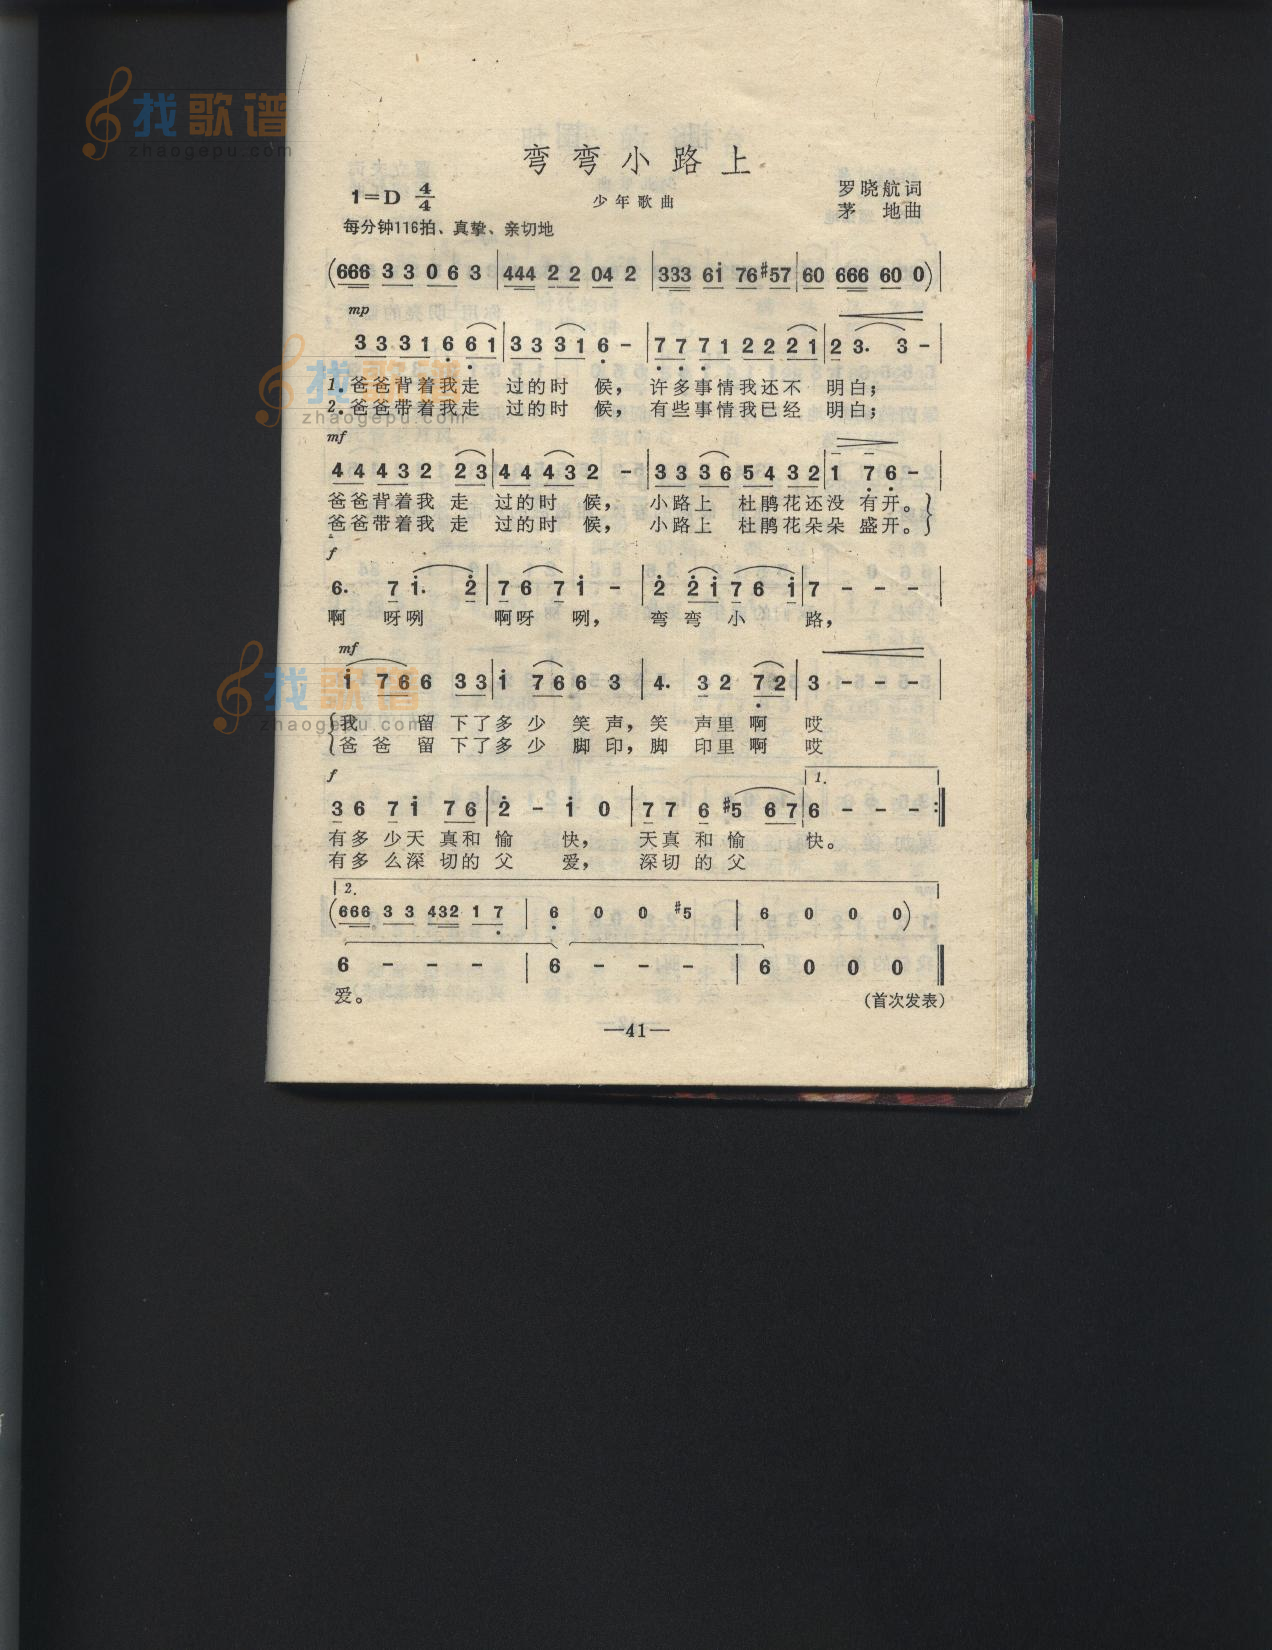 找歌谱
zhaogepu.com
弯弯小路上
1=D 4/4
少年歌曲
罗晓航词
茅 地曲
每分钟116拍、真挚、亲切地
(666 3 3 0 6 3 | 444 2 2 04 2 | 333 6i 76 #57 | 60 666 60 0) |
mp
3 3 3 1 6 6 1 | 3 3 3 1 6 - | 7 7 7 1 2 2 2 1 | 2 3. 3 - |
1.爸爸背着我走 过的时 候, 许多事情我还不 明白;
2.爸爸带着我走 过的时 候, 有些事情我已经 明白;
找歌谱
zhaogepu.com
mf
4 4 4 3 2 2 3 | 4 4 4 3 2 - | 3 3 3 6 5 4 3 2 | 1 7 6 - |
爸爸背着我 走 过的时 候, 小路上 杜鹃花还没 有开。
爸爸带着我 走 过的时 候, 小路上 杜鹃花朵朵 盛开。
f
6. 7 i. 2 | 7 6 7 i - | 2 2 i 7 6 i | 7 - - - |
啊 呀咧 啊呀 咧, 弯 弯 小 路,
mf
i 7 6 6 3 3 | i 7 6 6 3 | 4. 3 2 7 2 | 3 - - - |
找歌谱
zhaogepu.com
我 留 下了多少 笑 声, 笑 声里 啊 哎
爸 爸 留 下了多少 脚 印, 脚 印里 啊 哎
f
1.
3 6 7 i 7 6 | 2 - i 0 | 7 7 6 #5 6 7 | 6 - - - :||
有多 少天 真和 愉 快, 天真 和 愉 快。
有多 么深 切的 父 爱, 深切 的 父
2.
(666 3 3 432 1 7 | 6 0 0 #5 | 6 0 0 0)
6 - - - | 6 - - - | 6 0 0 0 ||
爱。
(首次发表)
—41—